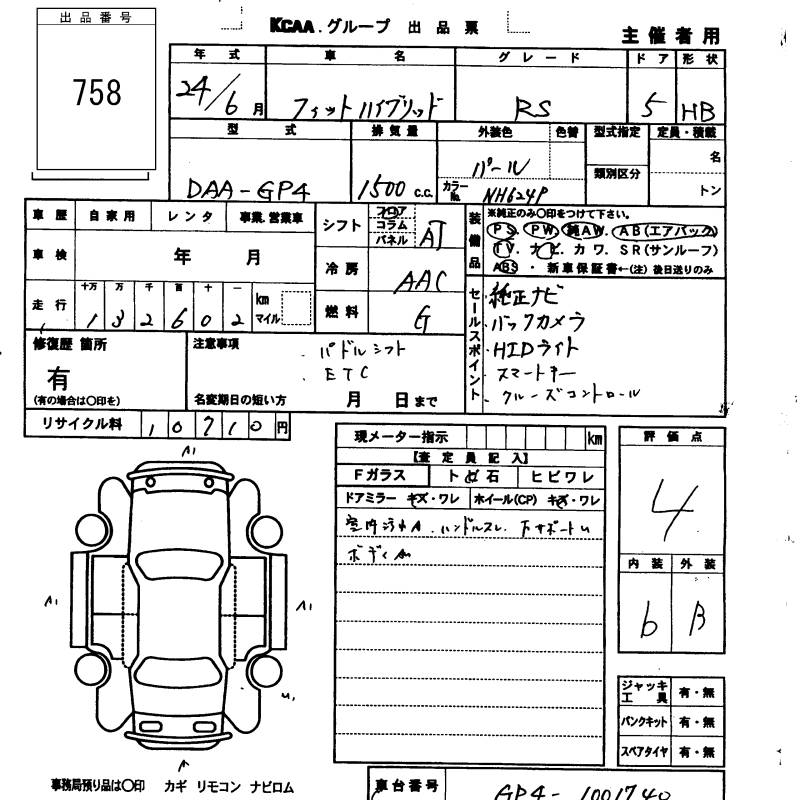 出品番号
758
KCAA.グループ 出品票
主催者用
年式 車名 グレード ドア 形状
24/6月 フィットハイブリッド RS 5 HB
型式 排気量 外装色 色替 型式指定 定員・積載
DAA-GP4 1500 c.c. パール 類別区分 名
カラーNo. NH624P トン
車歴 自家用 レンタ 事業.営業車
車検 年 月
走行 十万 万 千 百 十 一 km マイル
1 3 2 6 0 2
シフト フロア コラム パネル AT
冷房 AAC
燃料 G
装備品
※純正のみ〇印をつけて下さい。
PS. PW. 純AW. AB(エアバック)
TV. ナビ. カワ. SR(サンルーフ)
ABS・新車保証書←(注)後日送りのみ
セールスポイント
・純正ナビ
・バックカメラ
・HIDライト
・スマートキー
・クルーズコントロール
修復歴 箇所
有
(有の場合は〇印を)
注意事項
・パドルシフト
・ETC
名変期日の短い方 月 日まで
リサイクル料 10710円
現メーター指示 km
【査定員記入】
Fガラス トビ石 ヒビワレ
ドアミラー キズ・ワレ ホイール(CP) キズ・ワレ
室内汚れA.ハンドルスレ.
評価点
4
内装 外装
b B
A1
A1 A1
ジャッキ工具 有・無
パンクキット 有・無
スペアタイヤ 有・無
事務局預り品は〇印 カギ リモコン ナビロム
車台番号 GP4-1001740